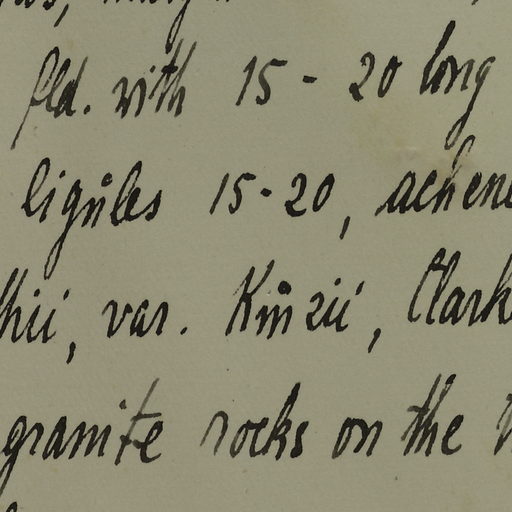 fld. with 15 - 20 long
ligůles 15-20, achene
thii, var. Kůnzii, Clark
granite rocks on the